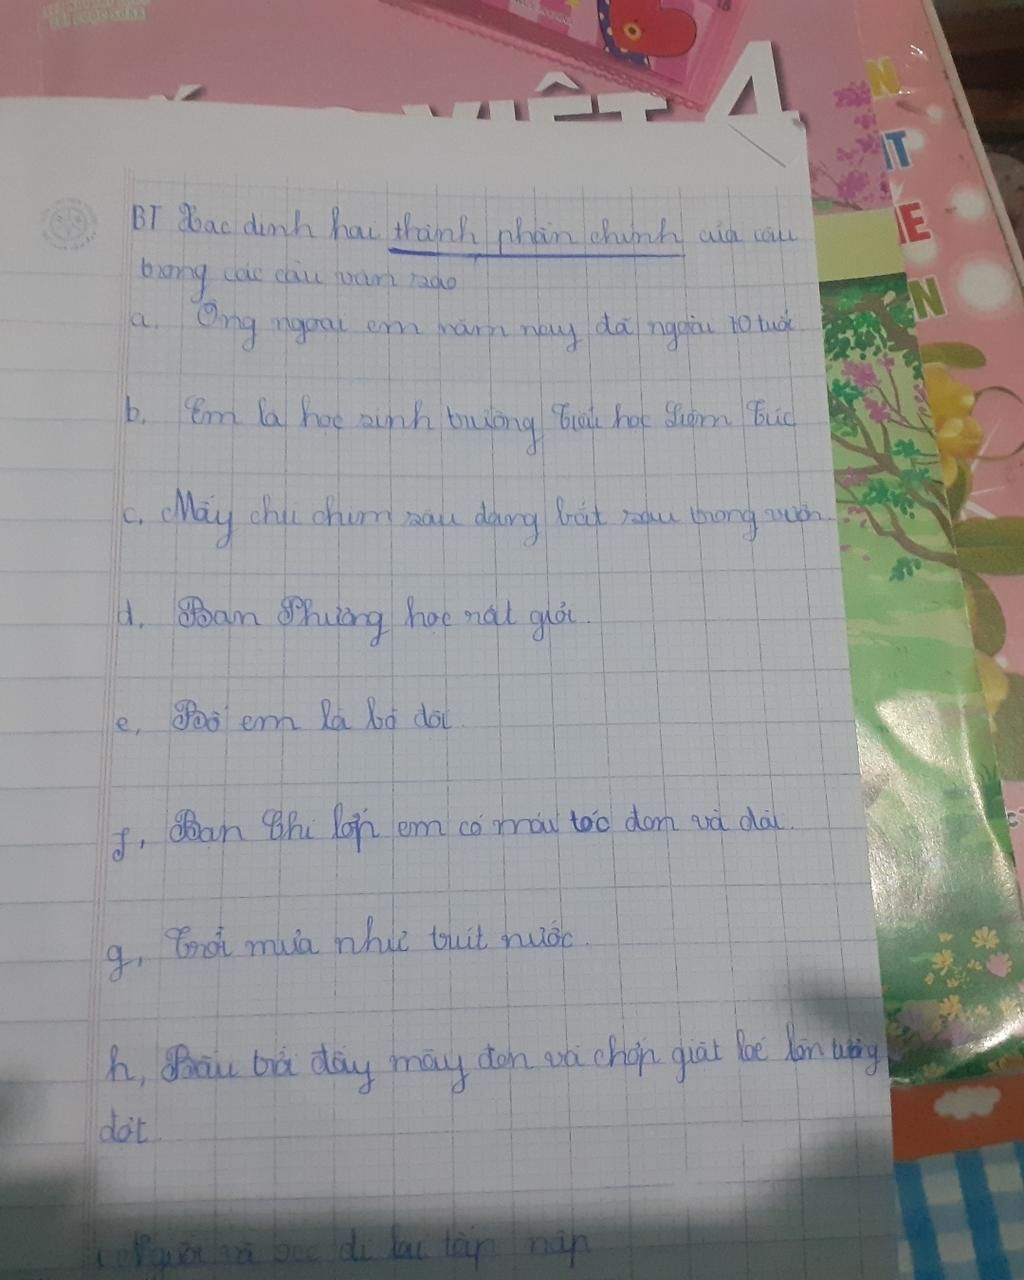 VIỆT 4
N
IT
E
N
BT Xác định hai thành phần chính của câu
trong các câu văn sao
a. Ông ngoại em năm nay đã ngoài 70 tuổi
b. Em là học sinh trường Tiểu học Liêm Túc
c. Mấy chú chim sâu đang bắt sâu trong vườn
d. Bạn Phương học rất giỏi.
e, Bố em là bộ đội
f, Bạn Chi lớp em có mái tóc đen và dài.
g, Trời mưa như trút nước.
h, Bầu trời đầy mây đen và chớp giật loé lên từng
đợt
Người và xe đi lại tấp nập